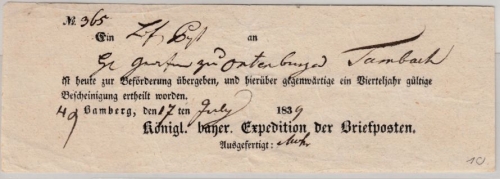 № 365
Ein an
Tambach
ist heute zur Beförderung übergeben, und hierüber gegenwärtige ein Vierteljahr gültige
Bescheinigung ertheilt worden.
49 Bamberg, den 17 ten July 1839
Königl. bayer. Expedition der Briefposten.
Ausgefertigt: